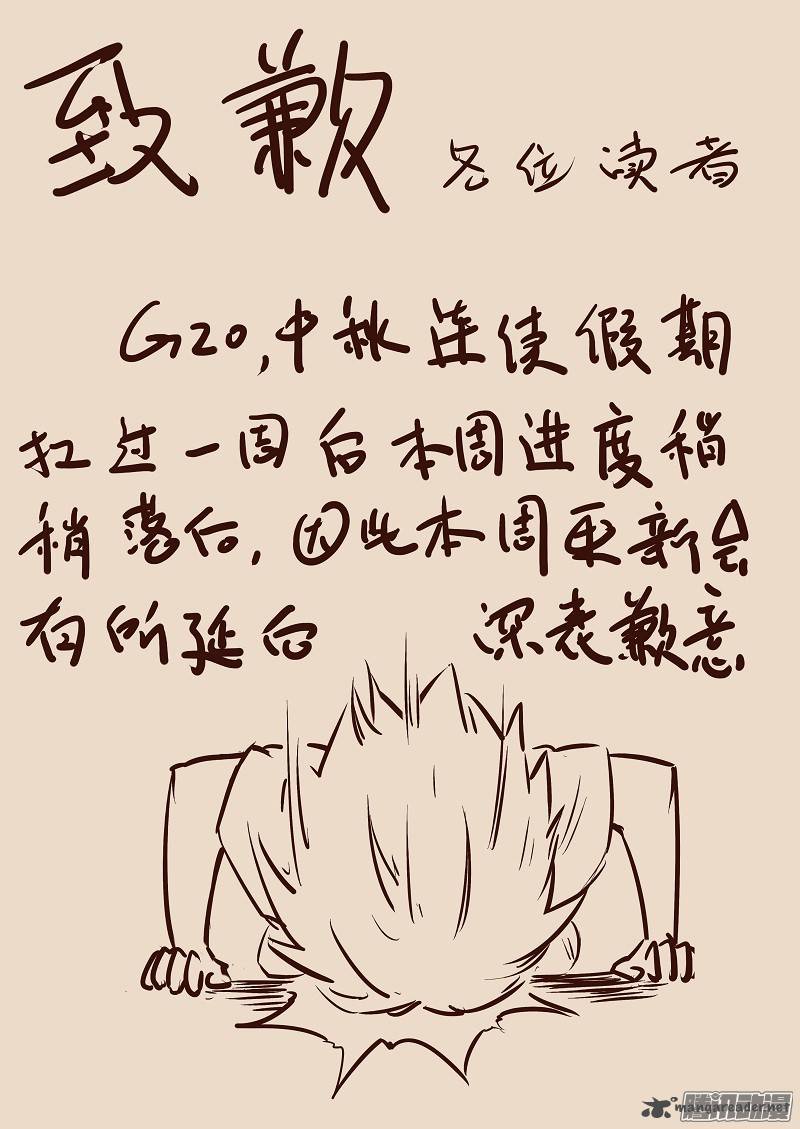 致歉 各位读者
G20,中秋连佳假期
扛过一周后本周进度稍
稍落后,因此本周更新会
有所延后 深表歉意
腾讯动漫
mangareader.net